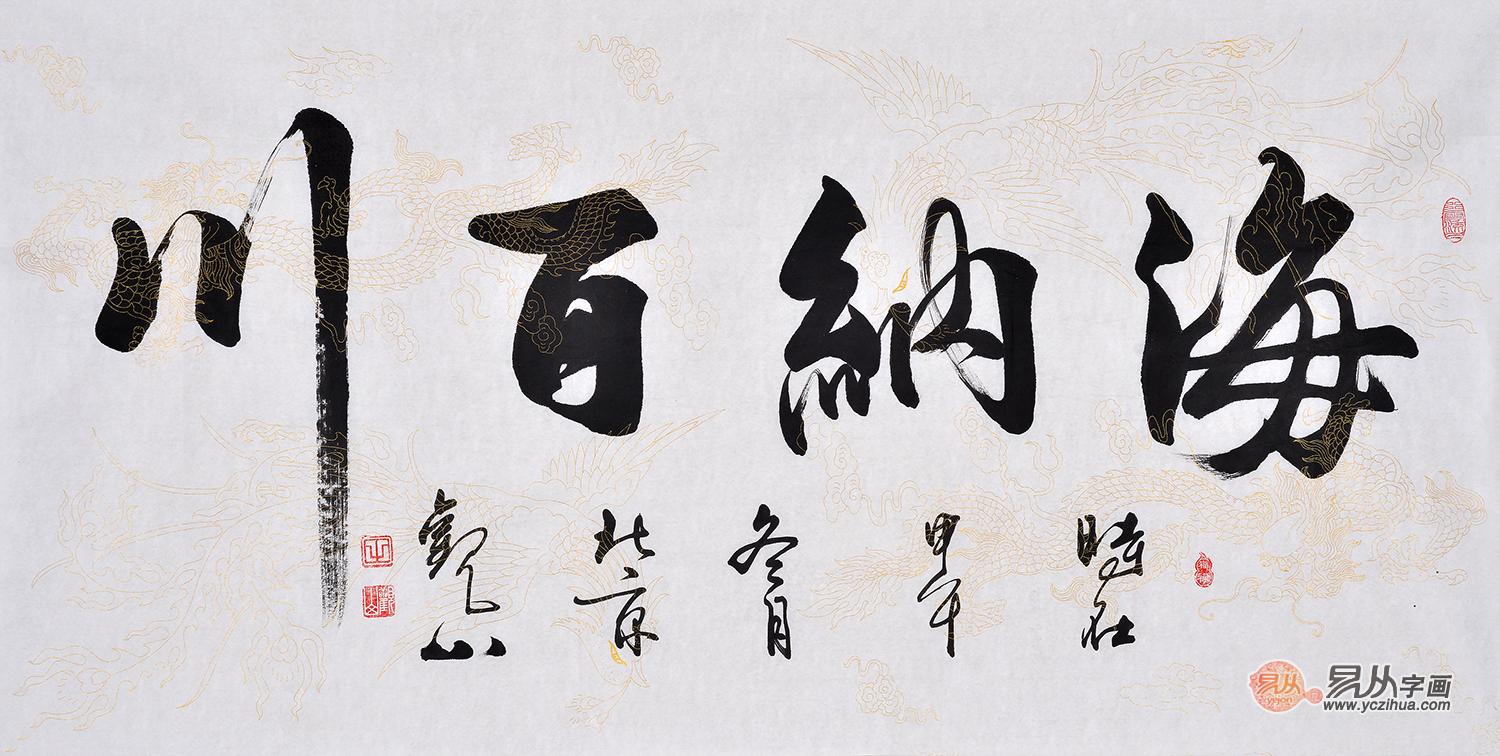 海納百川
時在
甲午
冬月
北京
觀山
易从字画
www.yczihua.com
yicon